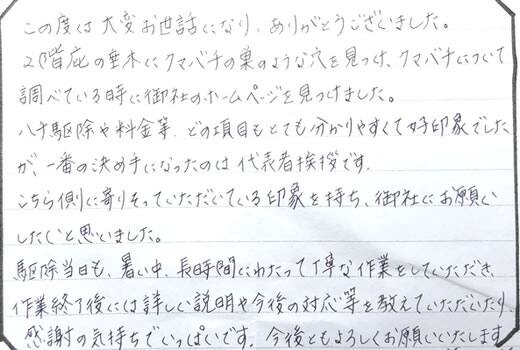 この度は大変お世話になり、ありがとうございました。
2階庇の垂木にクマバチの巣のような穴を見つけ、クマバチについて
調べている時に御社のホームページを見つけました。
ハチ駆除や料金等、どの項目もとても分かりやすくて好印象でした
が、一番の決め手になったのは代表者挨拶です。
こちら側に寄りそっていただいている印象を持ち、御社にお願い
したいと思いました。
駆除当日も、暑い中、長時間にわたって丁寧な作業をしていただき、
作業終了後には詳しい説明や今後の対応等を教えていただいたり、
感謝の気持ちでいっぱいです。今後ともよろしくお願いいたします